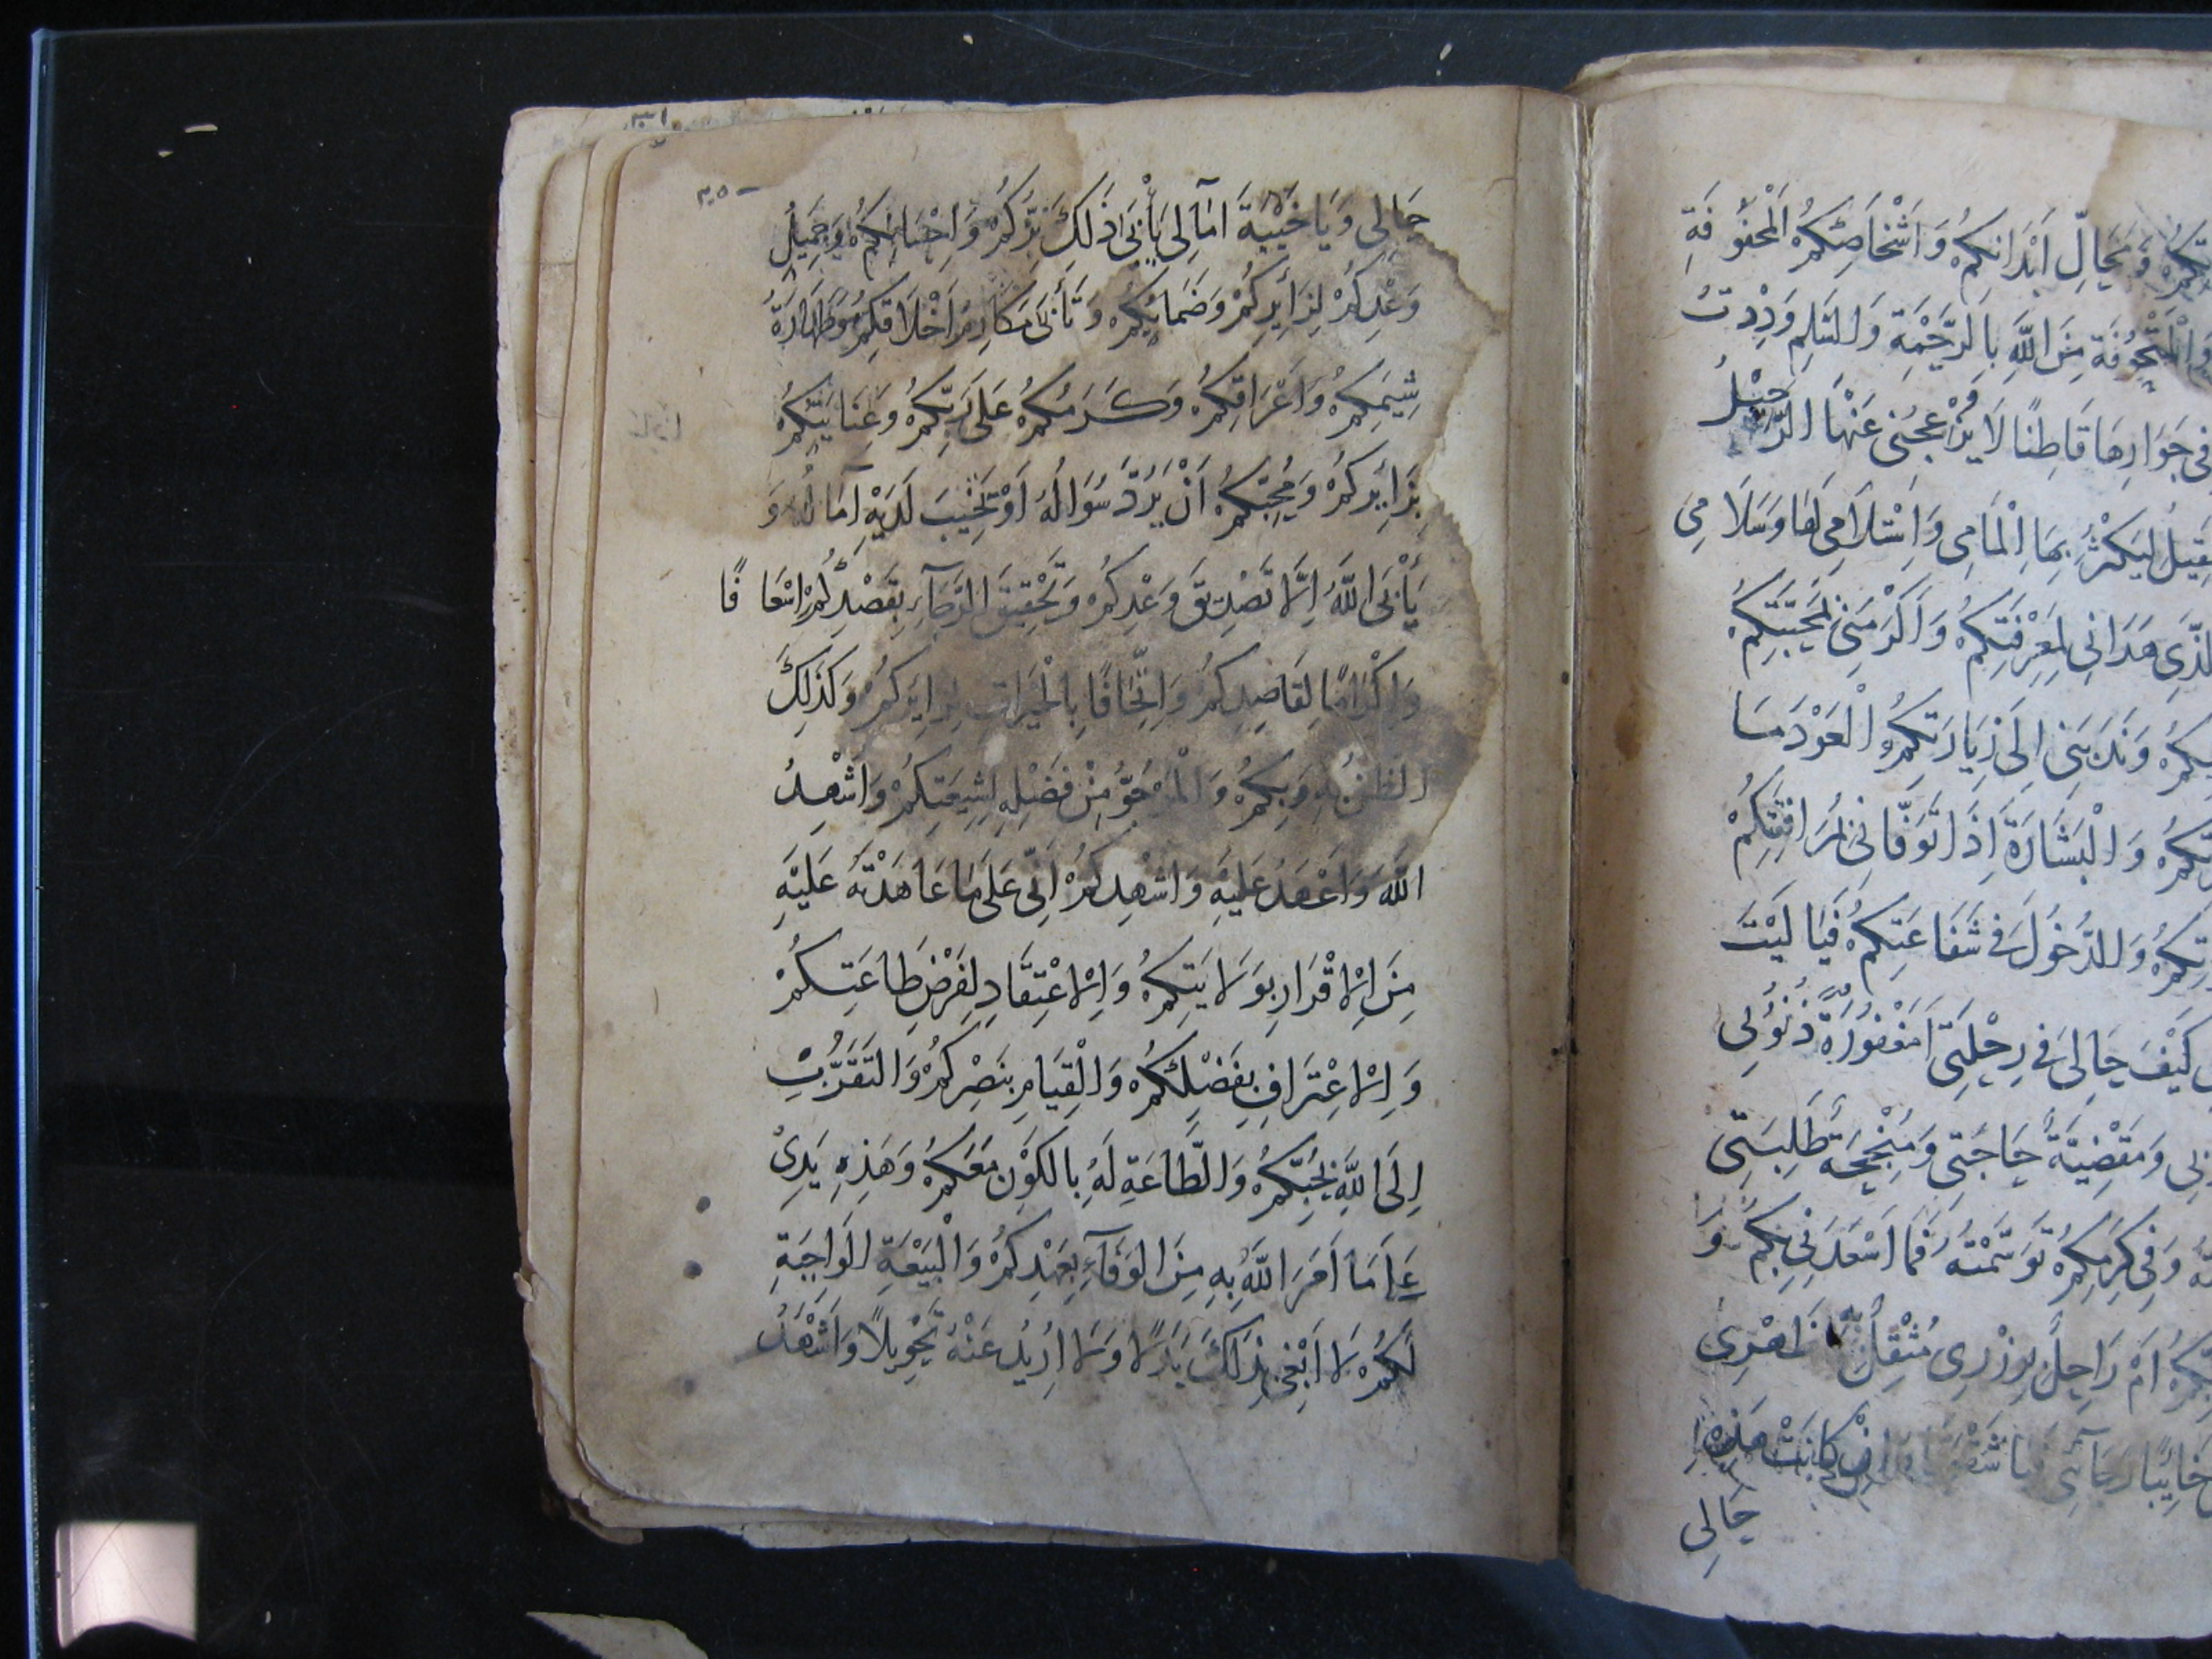 تكم وَمَحَالِّ اَبْدَانِكُمْ وَاَشْخَاصِكُمُ الْمَحْفُوفَةِ
مِنَ اللّٰهِ بِالرَّحْمَةِ وَدِدْتُ
فِى جَوَارِهَا قَاطِنًا لَا يُزْعِجُنِى عَنْهَا الرَّحِيْلُ
لِيَكْثُرَ بِهَا اِلْمَامِى وَاِسْتِلَامِى لَهَا وَسَلَامِى
الَّذِى هَدَانِى لِمَعْرِفَتِكُمْ وَاَكْرَمَنِى بِمَحَبَّتِكُمْ
وَنَدَبَنِى اِلَى زِيَارَتِكُمُ الْعَوْدَ مَا
وَالْبَشَارَةَ اِذَا تَوَفَّانِى لِمُرَافَقَتِكُمْ
وَالدُّخُولَ فِى شَفَاعَتِكُمْ فَيَا لَيْتَ
كَيْفَ حَالِى فِى رِحْلَتِى اَمَغْفُورَةٌ ذُنُوْبِى
وَمَقْضِيَّةٌ حَاجَتِى وَمُنْجِحَة طَلِبَتِى
وَفِى كَرَمِكُمْ تَوَسَّمْتُهُ فَمَا اَسْعَدَنِى بِكُمْ وَ
اَمْ رَاحِلٌ بِوِزْرِى مُثْقِلٌ ظَهْرِى
خَايِبًا رَجَائِى اِنْ كَانَتْ هٰذِهِ
حَالِى
٣٥٠
حَالِى وَيَا خَيْبَةَ اٰمَالِى يَأْبَى ذَلِكَ بِرُّكُمْ وَاِحْسَانُكُمْ وَجَمِيْلُ
وَعْدِكُمْ لِزَايِرِكُمْ وَضَمَانُكُمْ وَتَأْبَى مَكَارِمُ اَخْلَاقِكُمْ وَطَهَارَةُ
شِيَمِكُمْ وَاَعْرَاقِكُمْ وَكَرَمُكُمْ عَلَى رَبِّكُمْ وَعَنَايَتُكُمْ
بِزَايِرِكُمْ وَمُحِبِّكُمْ اَنْ يَرُدَّ سُؤَالُهُ اَوْ تَخِيْبَ لَدَيْهِ اٰمَالُهُ وَ
يَأْبَى اللّٰهُ اِلَّا تَصْدِيْقَ وَعْدِكُمْ وَتَحْقِيْقَ الرَّجَآءِ بِقَصْدِكُمْ اِسْعَافًا
وَاِكْرَامًا لِقَاصِدِكُمْ وَاِتْحَافًا بِالْخَيْرَاتِ لِزَايِرِكُمْ وَكَذَلِكَ
الظَّنُّ بِهِ وَبِكُمْ وَالْمَرْجُوُّ مِنْ فَضْلِهِ لِشِيْعَتِكُمْ وَاُشْهِدُ
اللّٰهَ وَاَعْهَدُ عَلَيْهِ وَاُشْهِدُكُمْ اَنِّى عَلَى مَا عَاهَدْتُهُ عَلَيْهِ
مِنَ اِلْاقْرَارِ بِوَلَايَتِكُمْ وَاِلْاعْتِقَادِ لِفَرْضِ طَاعَتِكُمْ
وَاِلْاعْتِرَافِ بِفَضْلِكُمْ وَالْقِيَامِ بِنَصْرِكُمْ وَالتَّقَرُّبِ
اِلَى اللّٰهِ بِحُبِّكُمْ وَالطَّاعَةِ لَهُ بِالْكَوْنِ مَعَكُمْ وَهَذِهِ يَدِىْ
عَلٰى مَا اَمَرَ اللّٰهُ بِهِ مِنَ الْوَفَآءِ بِعَهْدِكُمْ وَالْبَيْعَةِ الْوَاجِبَةِ
لَكُمْ لَا اَبْتَغِى بِذَلِكَ بَدَلًا وَلَا اُرِيْدُ عَنْهُ تَحْوِيلًا وَاَشْهَدُ